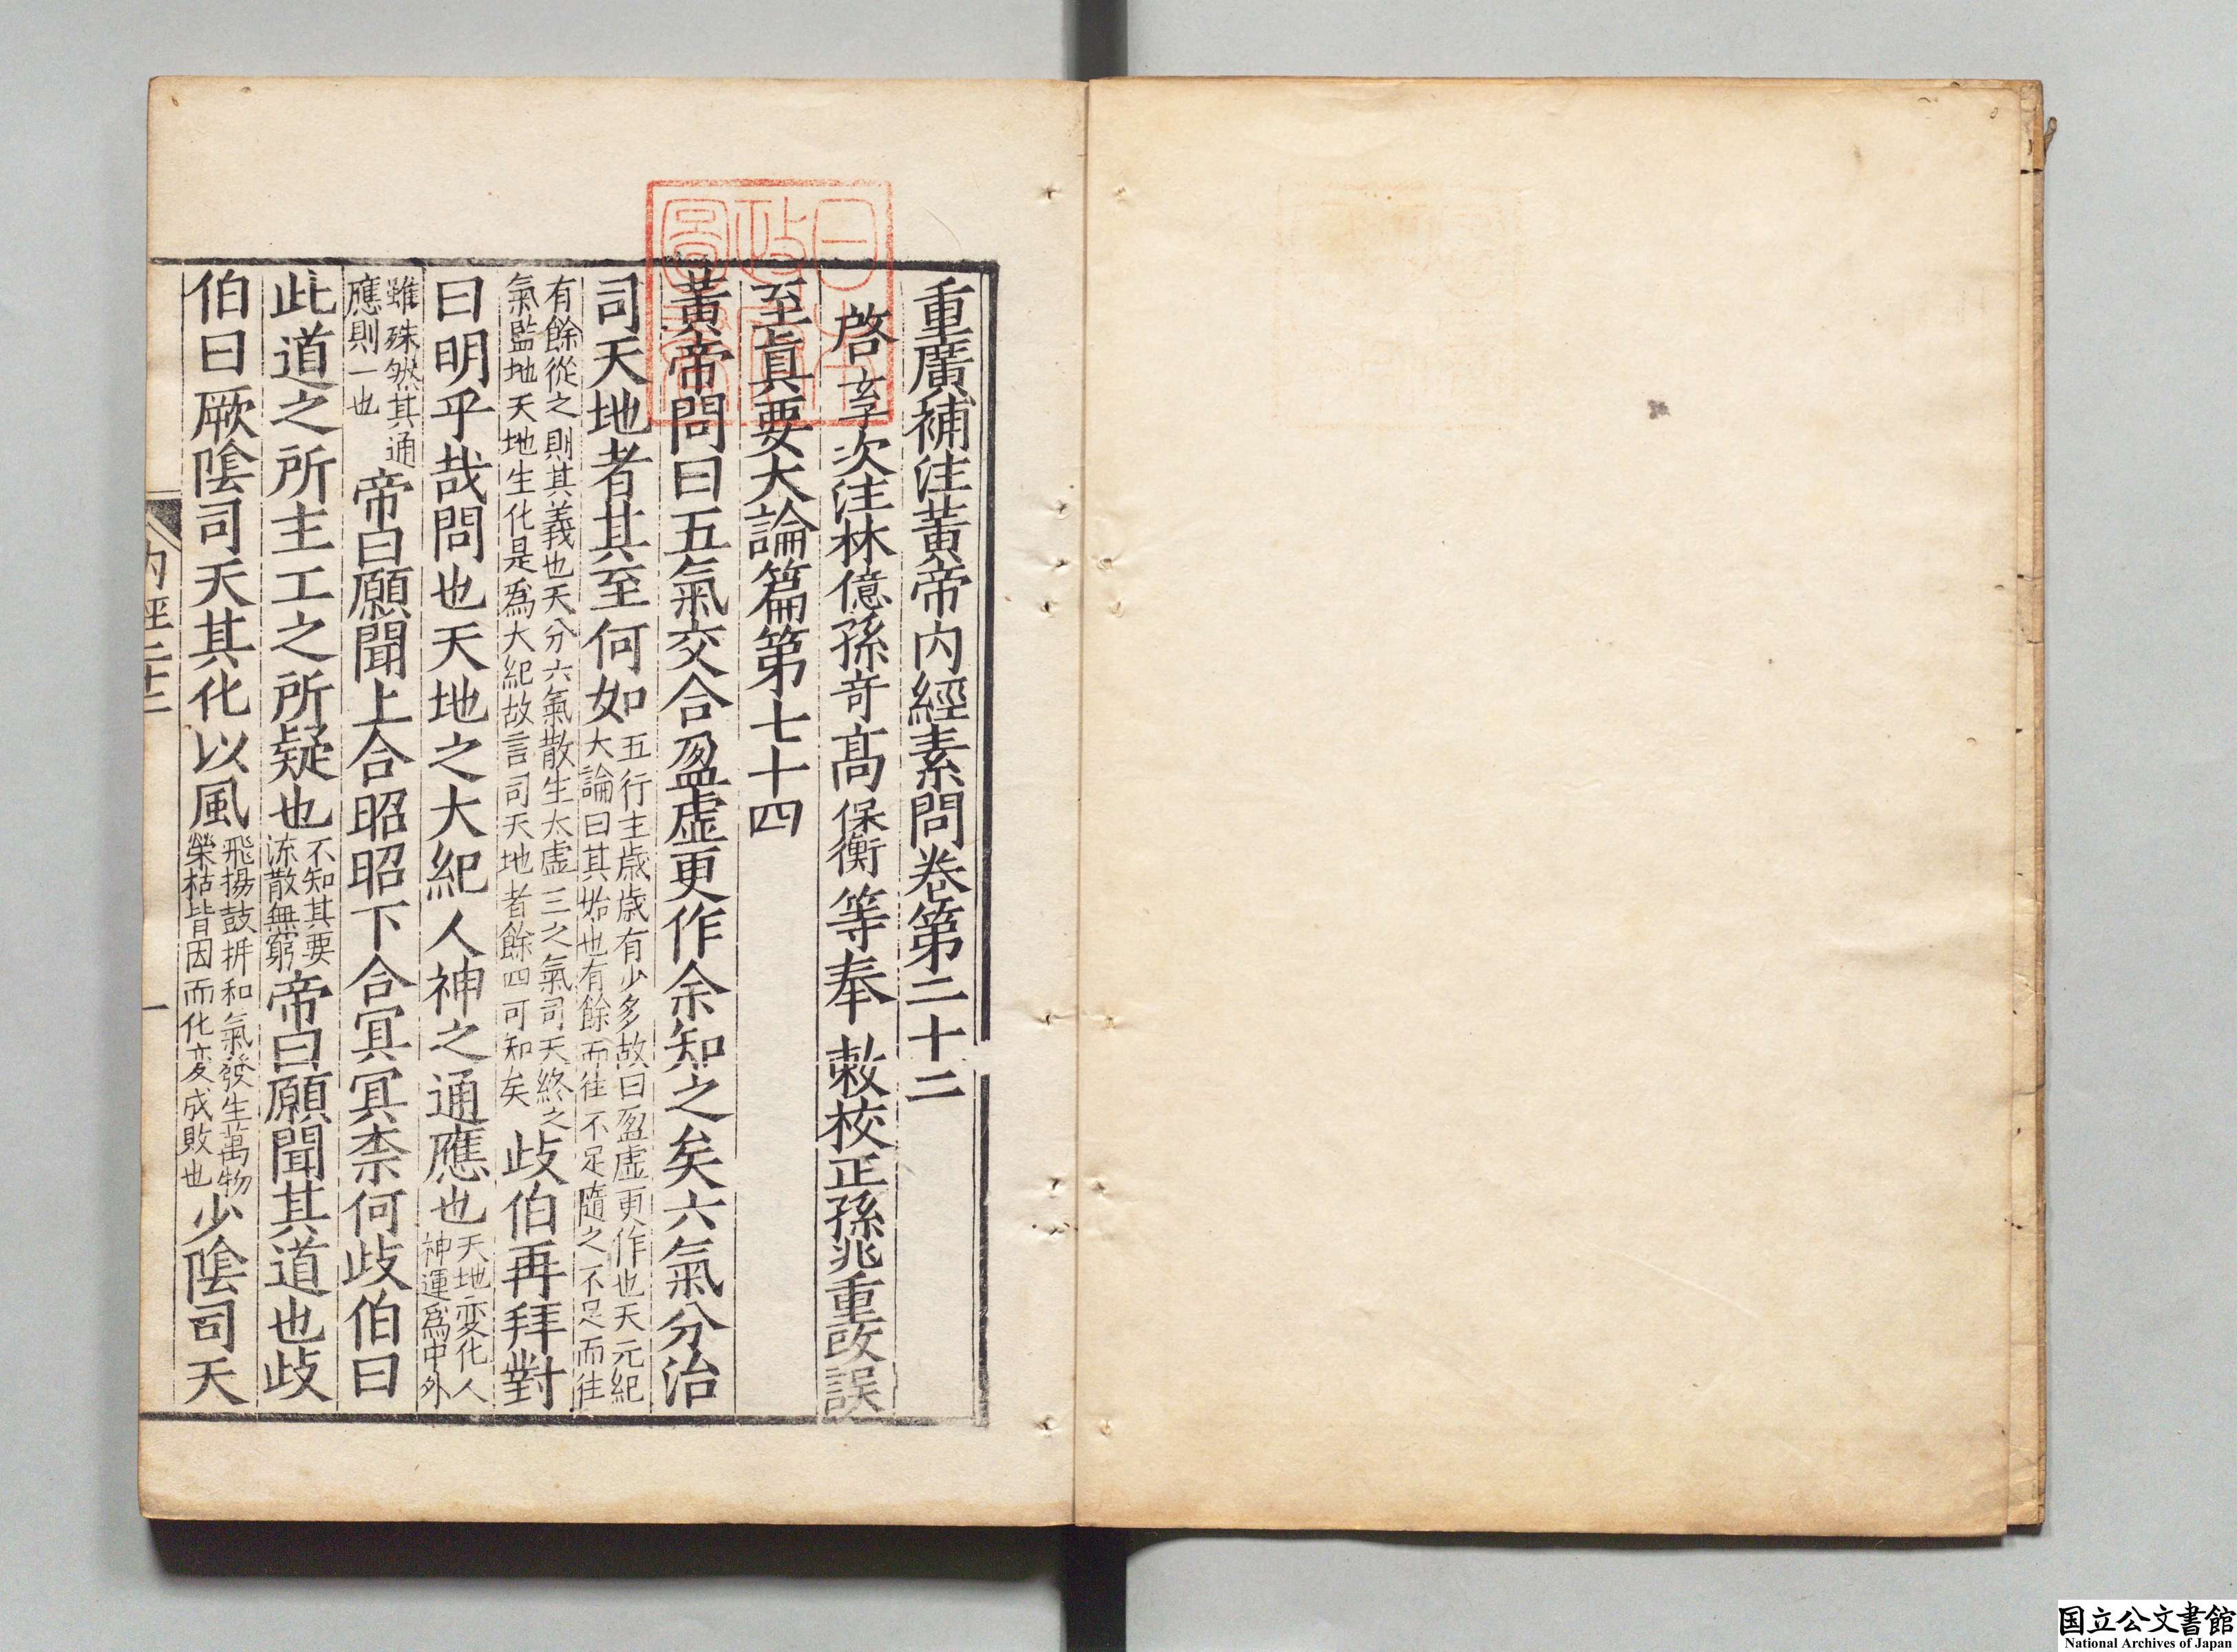 重廣補注黃帝内經素問卷第二十二
啓玄子次注林億孫竒髙保衡等奉敕校正孫兆重攺誤
至真要大論篇第七十四
黃帝問曰五氣交合盈虛更作余知之矣六氣分治
司天地者其至何如五行主歳歳有少多故曰盈虛更作也天元紀
大論曰其始也有餘而往不足隨之不足而往
有餘從之則其義也天分六氣散生太虛三之氣司天終之
氣監地天地生化是爲大紀故言司天地者餘四可知矣歧伯再拜對
曰明乎哉問也天地之大紀人神之通應也天地変化人
神運爲中外
雖殊然其通
應則一也帝曰願聞上合昭昭下合冥冥柰何歧伯曰
此道之所主工之所疑也不知其要
流散無窮帝曰願聞其道也歧
伯曰厥隂司天其化以風飛揚鼓拆和氣發生萬物
榮枯皆因而化变成敗也少隂司天
内經二十二
一
国立公文書館
National Archives of Japan